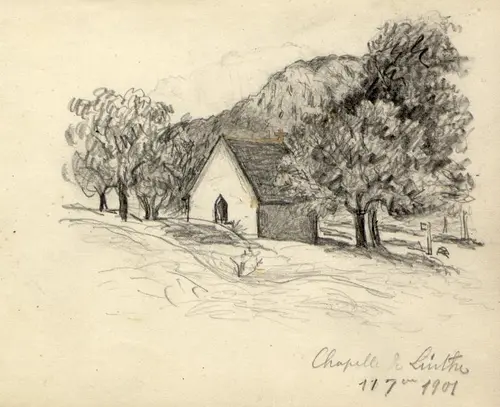 Chapelle de Linthe
11 7bre 1901